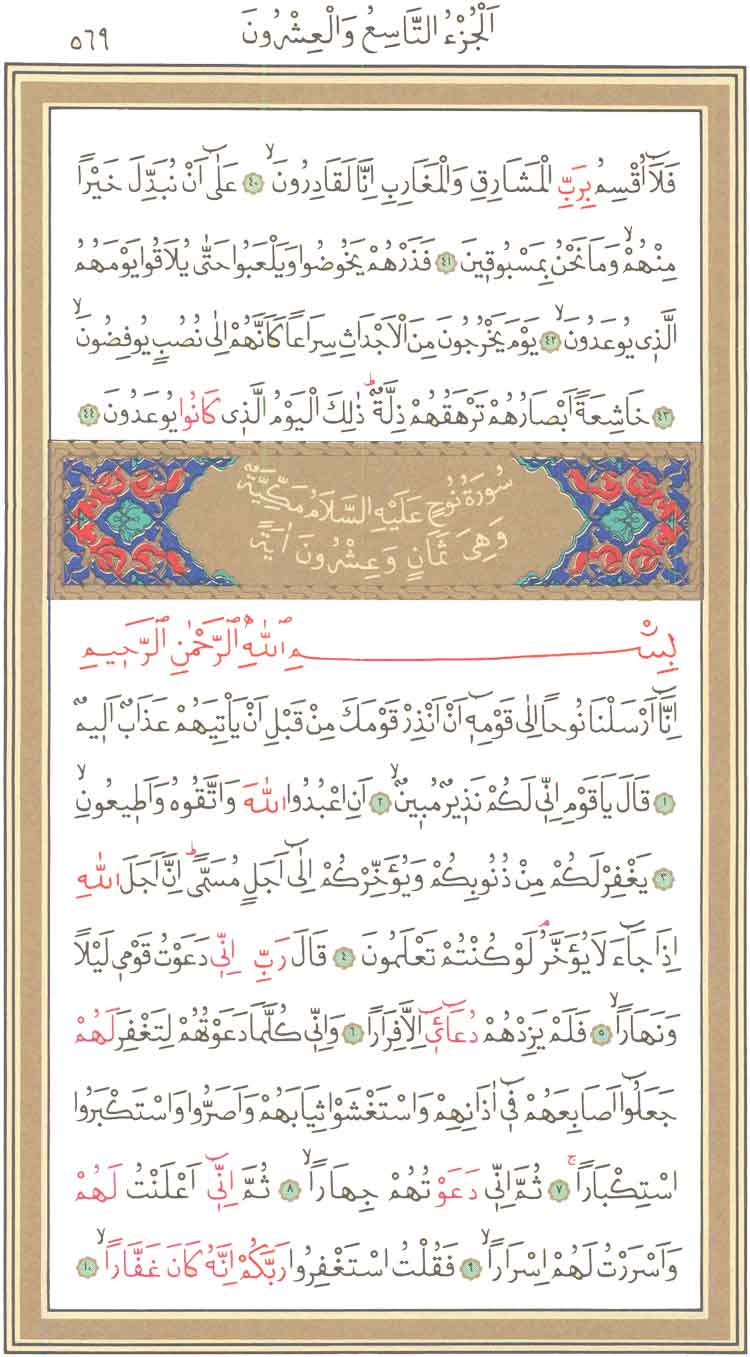 اَلْجُزْءُ التَّاسِعُ وَالْعِشْرُونَ
٥٦٩
فَلَٓا اُقْسِمُ بِرَبِّ الْمَشَارِقِ وَالْمَغَارِبِ اِنَّا لَقَادِرُونَۙ ﴿٤٠﴾ عَلٰٓى اَنْ نُبَدِّلَ خَيْرًا
مِنْهُمْۙ وَمَا نَحْنُ بِمَسْبُوقٖينَ ﴿٤١﴾ فَذَرْهُمْ يَخُوضُوا وَيَلْعَبُوا حَتّٰى يُلَاقُوا يَوْمَهُمُ
الَّذٖى يُوعَدُونَۙ ﴿٤٢﴾ يَوْمَ يَخْرُجُونَ مِنَ الْاَجْدَاثِ سِرَاعًا كَاَنَّهُمْ اِلٰى نُصُبٍ يُوفِضُونَۙ
﴿٤٣﴾ خَاشِعَةً اَبْصَارُهُمْ تَرْهَقُهُمْ ذِلَّةٌؕ ذٰلِكَ الْيَوْمُ الَّذٖى كَانُوا يُوعَدُونَ ﴿٤٤﴾
سُورَةُ نُوحٍ عَلَيْهِ السَّلَامُ مَكِّيَّةٌ
وَهِىَ ثَمَانٍ وَعِشْرُونَ اٰيَةً
بِسْمِ اللّٰهِ الرَّحْمٰنِ الرَّحٖيمِ
اِنَّٓا اَرْسَلْنَا نُوحًا اِلٰى قَوْمِهٖٓ اَنْ اَنْذِرْ قَوْمَكَ مِنْ قَبْلِ اَنْ يَاْتِيَهُمْ عَذَابٌ اَلٖيمٌ
﴿١﴾ قَالَ يَا قَوْمِ اِنّٖى لَكُمْ نَذٖيرٌ مُبٖينٌۙ ﴿٢﴾ اَنِ اعْبُدُوا اللّٰهَ وَاتَّقُوهُ وَاَطٖيعُونِۙ
﴿٣﴾ يَغْفِرْ لَكُمْ مِنْ ذُنُوبِكُمْ وَيُؤَخِّرْكُمْ اِلٰٓى اَجَلٍ مُسَمًّىؕ اِنَّ اَجَلَ اللّٰهِ
اِذَا جَٓاءَ لَا يُؤَخَّرُۢ لَوْ كُنْتُمْ تَعْلَمُونَ ﴿٤﴾ قَالَ رَبِّ اِنّٖى دَعَوْتُ قَوْمٖى لَيْلًا
وَنَهَارًاۙ ﴿٥﴾ فَلَمْ يَزِدْهُمْ دُعَٓائٖٓى اِلَّا فِرَارًا ﴿٦﴾ وَاِنّٖى كُلَّمَا دَعَوْتُهُمْ لِتَغْفِرَ لَهُمْ
جَعَلُٓوا اَصَابِعَهُمْ فٖٓى اٰذَانِهِمْ وَاسْتَغْشَوْا ثِيَابَهُمْ وَاَصَرُّوا وَاسْتَكْبَرُوا
اسْتِكْبَارًاۚ ﴿٧﴾ ثُمَّ اِنّٖى دَعَوْتُهُمْ جِهَارًاۙ ﴿٨﴾ ثُمَّ اِنّٖٓى اَعْلَنْتُ لَهُمْ
وَاَسْرَرْتُ لَهُمْ اِسْرَارًاۙ ﴿٩﴾ فَقُلْتُ اسْتَغْفِرُوا رَبَّكُمْ اِنَّهُ كَانَ غَفَّارًاۙ ﴿١٠﴾